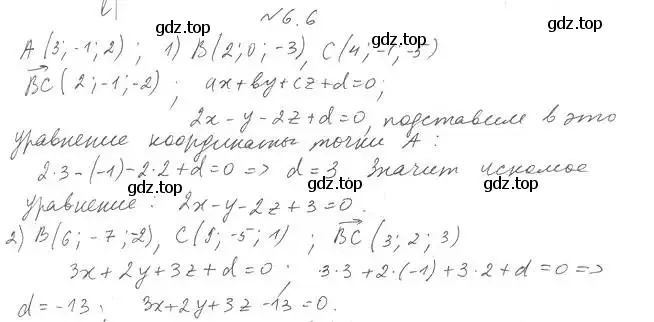 gdz.top gdz.top gdz.top
№6.6
A(3;-1;2); 1) B(2;0;-3), C(4;-1;-5)
BC(2;-1;-2); ax+by+cz+d=0;
2x-y-2z+d=0, подставим в это
уравнение координаты точки A:
gdz.top gdz.top gdz.top
2·3-(-1)-2·2+d=0 => d=3 Значит искомое
уравнение: 2x-y-2z+3=0.
gdz.top gdz.top
2) B(6;-7;-2), C(9;-5;1); BC(3;2;3)
3x+2y+3z+d=0; 3·3+2·(-1)+3·2+d=0=>
d=-13; 3x+2y+3z-13=0.
gdz.top gdz.top gdz.top